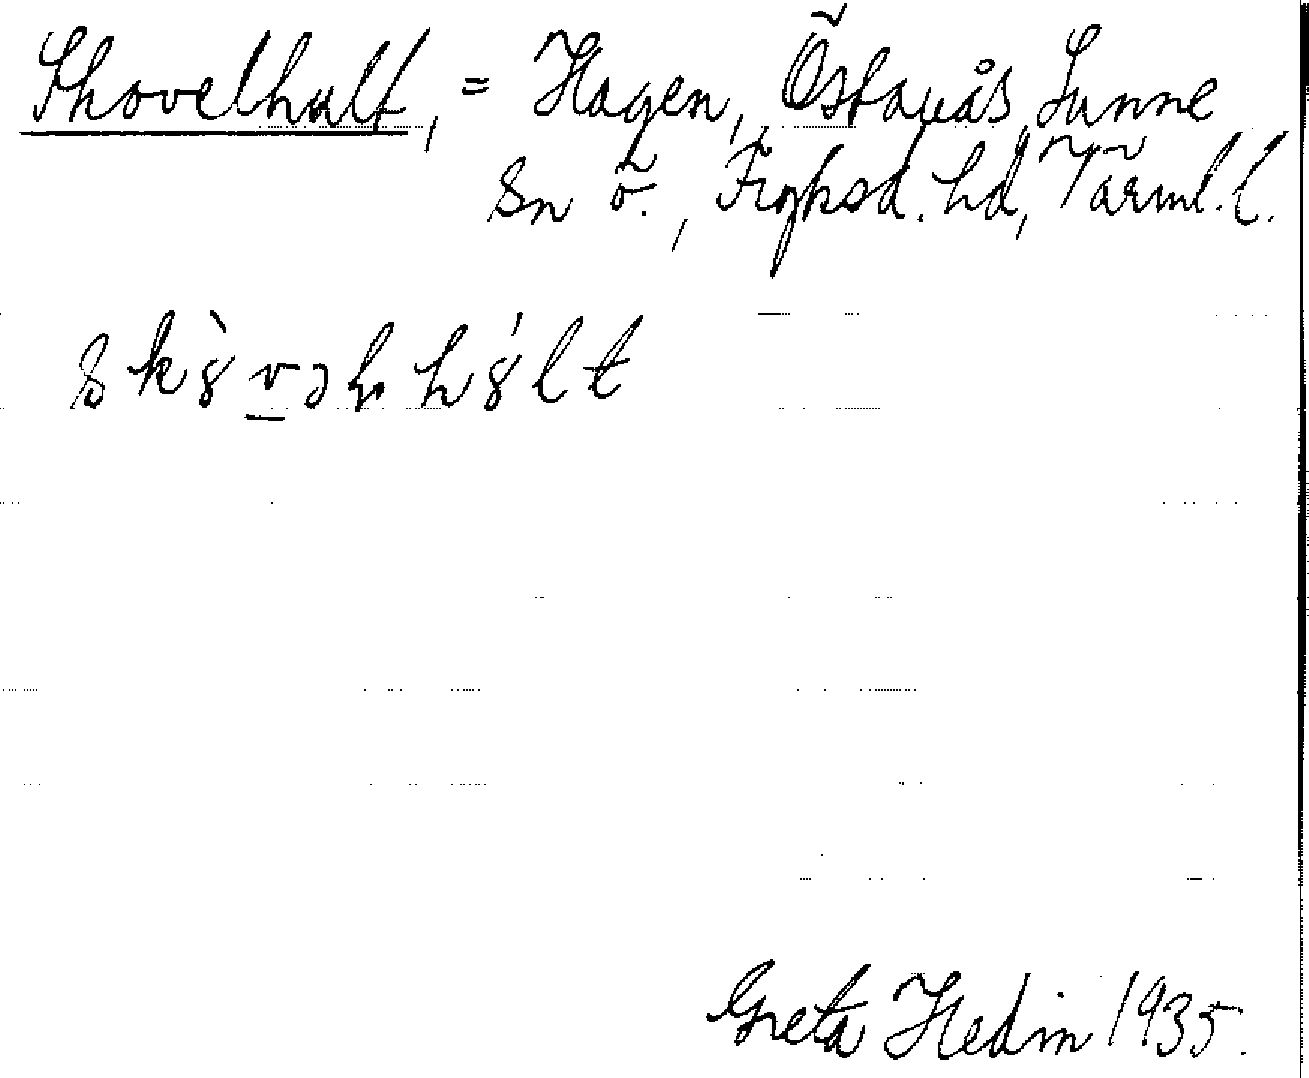 Skovelhult, = Hagen, Östanås, Sunne
sn ö., Fryksd. hd, Värml. l.
Greta Hedin 1935.